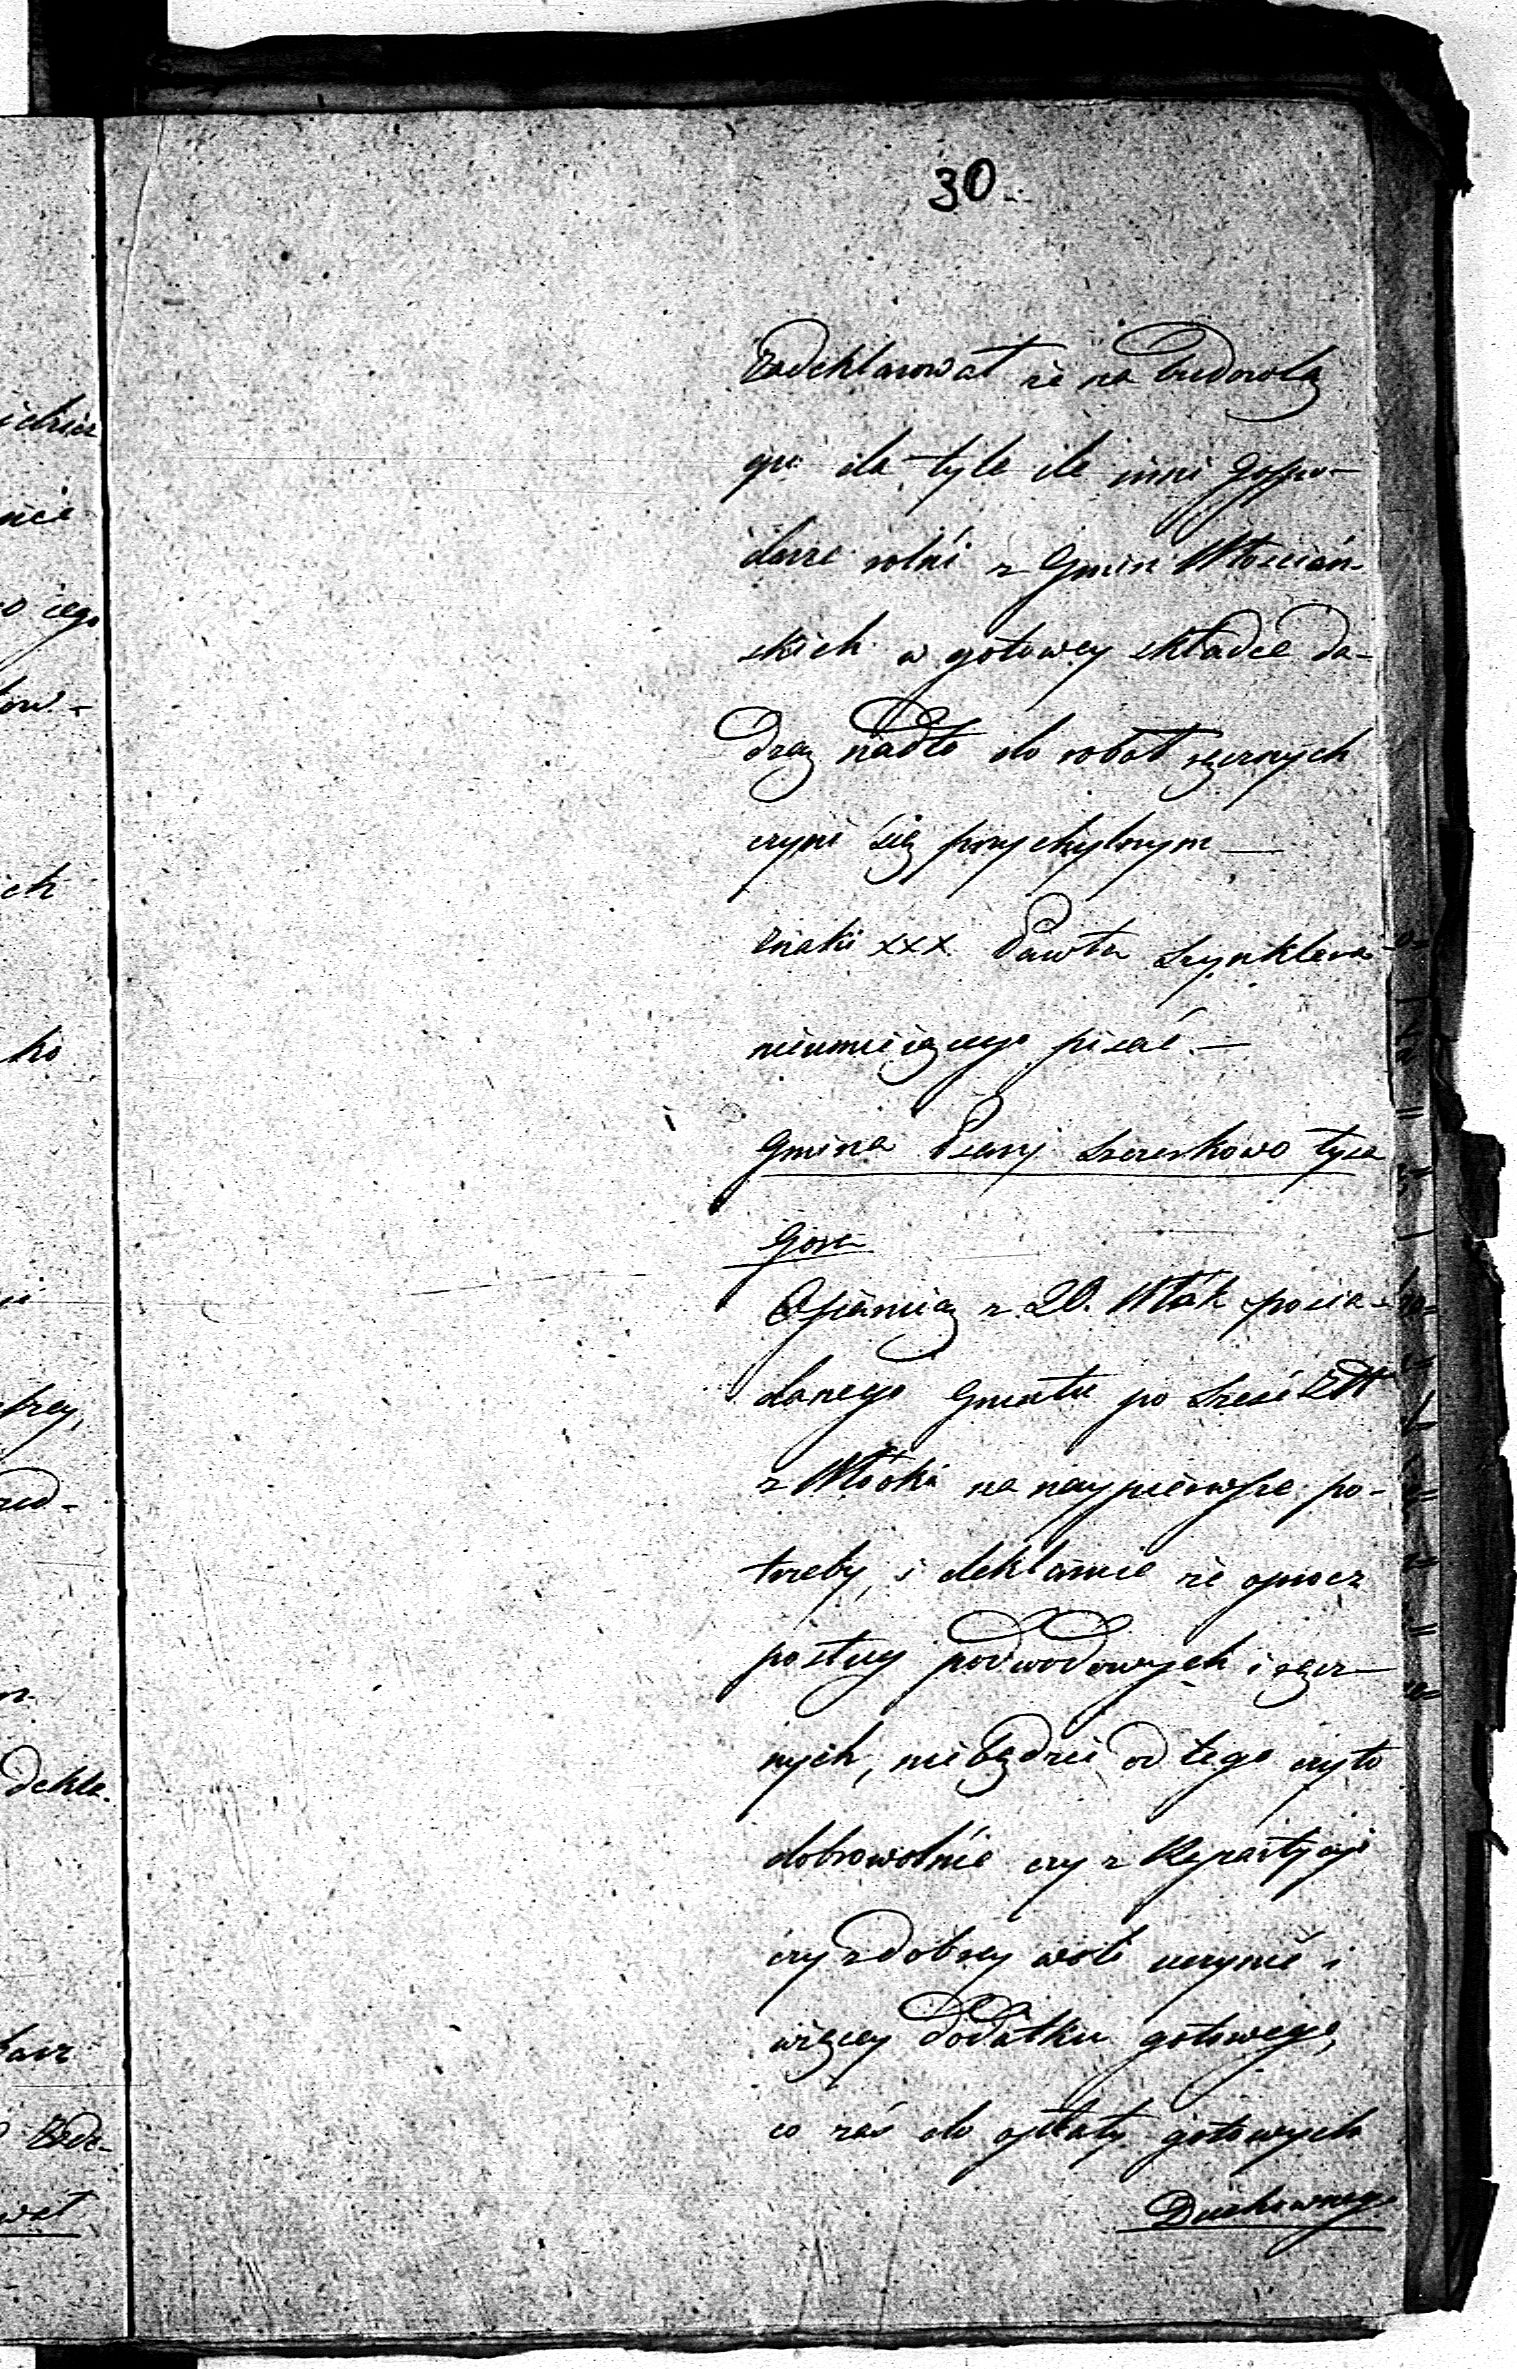 30
Zadeklarował że na budowlą
gu da tyle ile inni gospo-
darze rolni z Gmin Włościań-
skich w gotowey składce da-
dzą nadto do robot ręcznych
czyni się przychylnym —
Znaki xxx Pawła Szynklera
nieumieiącego pisać. —
Gmina Psary Szereskowo łysa
Gora
Ofiaruią z 20. Włók posia-
danego Gruntu po sześć Zł
z Włoki na naypierwsze po-
trzeby, i deklaruie że oprocz
posług podwodowych i ręcz-
nych, nie będzie od tego czyto
dobrowolnie czy z Repartycyi
czy z dobrey woli uczynić i
więcey dodatku gotowego,
co zaś do opłaty gotowych
Duchowneg